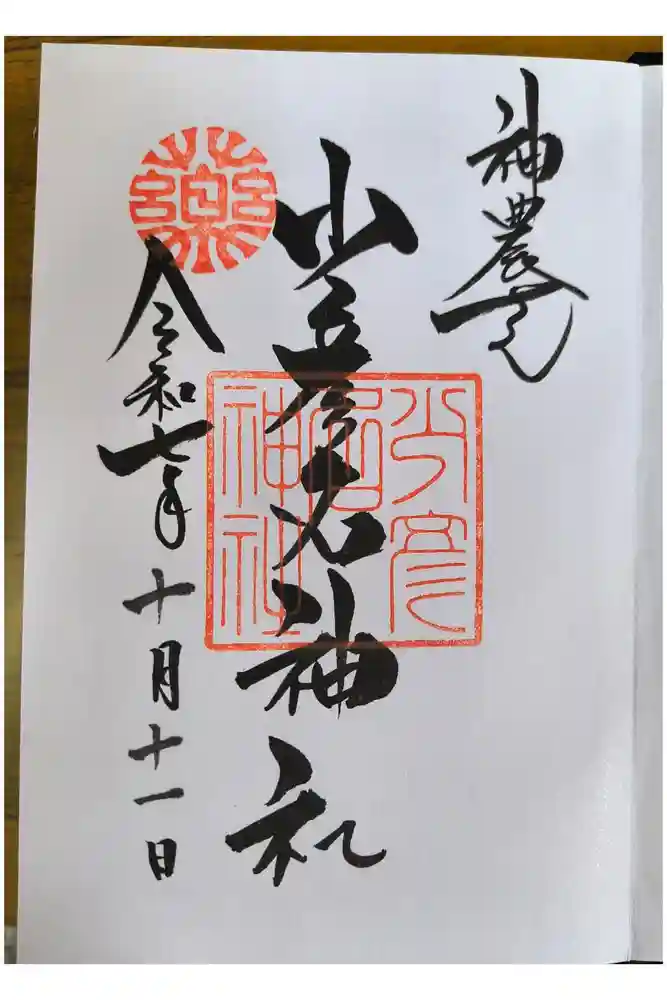 神農さん
少彦名神社
少彦名神社
令和七年
十月十一日